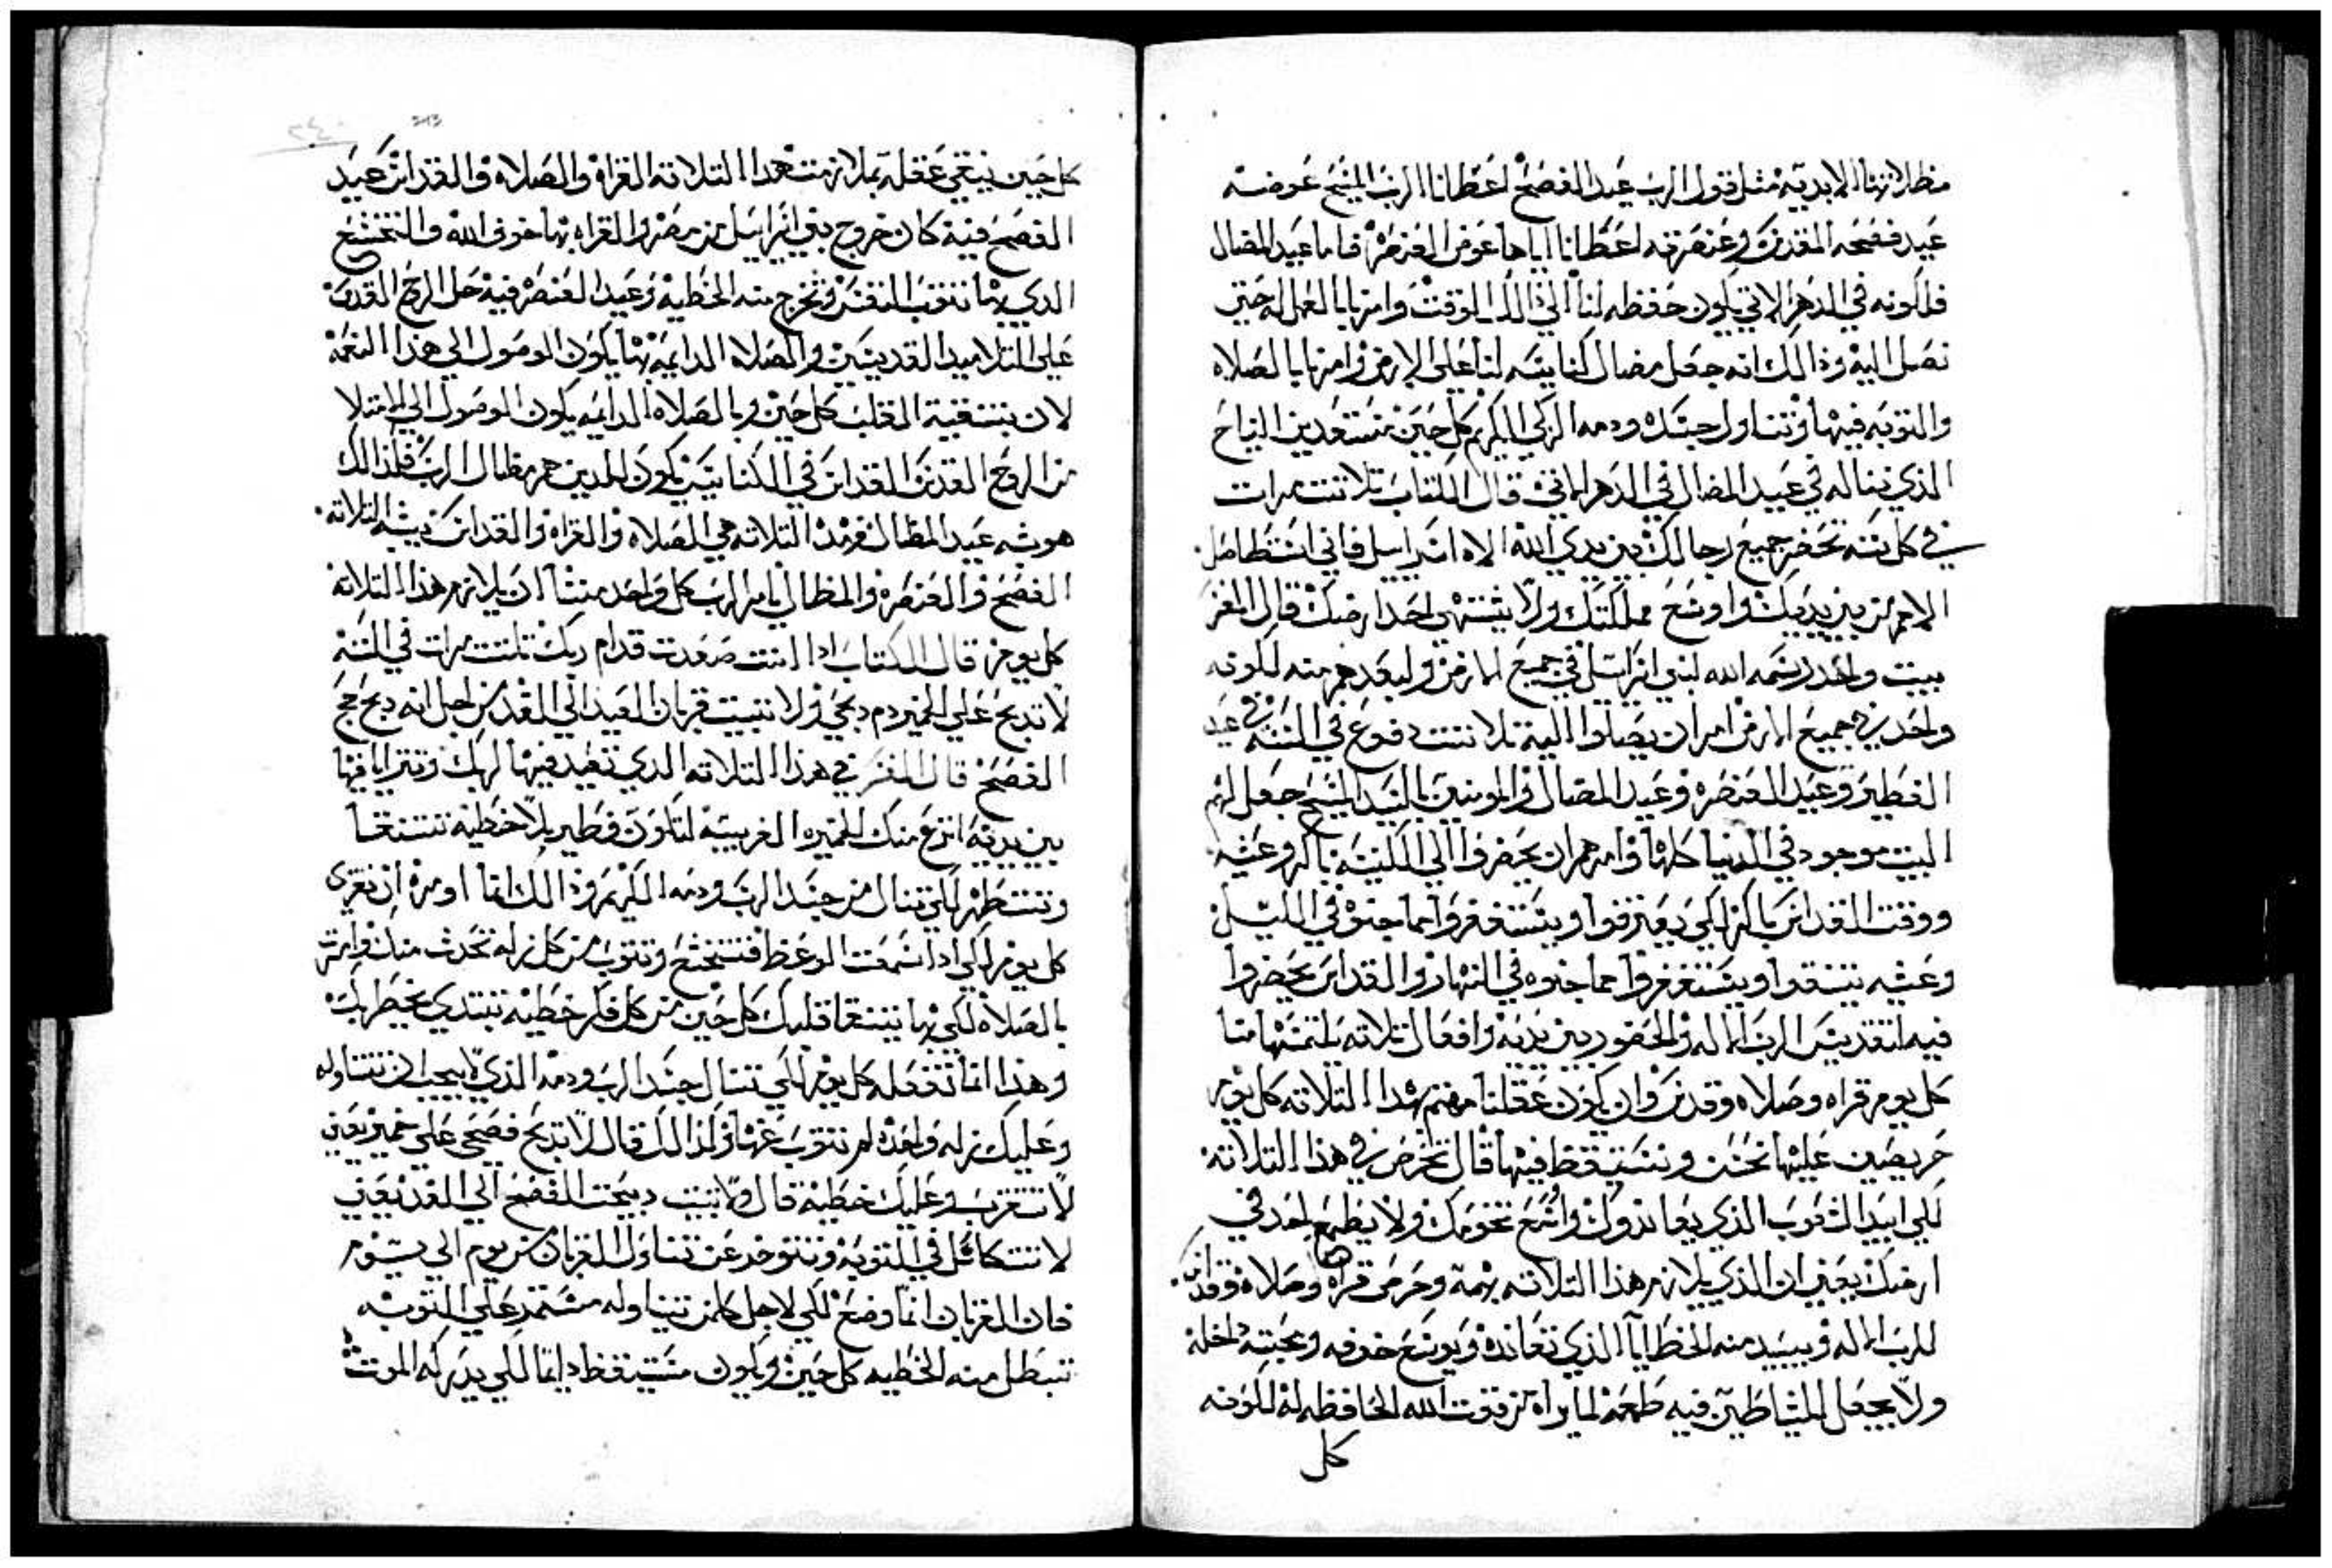 مظلاتهنا الابديه مثل قول الرب عيد الفصح اعطانا الرب المسيح عوضه
عيد فصحه المقدس وعنصرته اعطانا اياها عوض العنصره فاما عيد المضال
فلكونه في الدهر الاتي يكون حفظه لنا الي ذلك الوقت وامرنا بالعمل له حتي
نصل اليه وذالك انه جعل مضال كنايسه لنا علي الارض وامرنا بالصلاه
والتوبه فيها وتناول جسده ودمه الزكي الكريم كل حين مستعدين النياح
الذي نناله في عيد المضال في الدهر الاتي قال الكتاب تلاتت مرات
في كل سنه تحضر جميع رجالك بين يدي الله الاه اسراييل فاني استطاصل
الامم من بين يديك واوسع مملكتك ولا يشتهي احد ارضك قال المفسر
بيت واحد رسمه الله لبني اسراييل في جميع الارض ولبعدهم منه لكونه
واحد في جميع الارض امر ان يصلوا اليه تلاتت دفوع في السنه في عيد
الفطير وعيد العنصره وعيد المضال والمومنين بالسيد المسيح جعل لهم
البيت موجود في الدنيا كلها وامرهم ان يحضروا الي الكنيسه باكر وعشيه
ووقت القداس باكر لكي يعترفوا ويستغفروا مما جنوه في الليل
وعشيه يتنقوا ويستغفروا مما جنوه في النهار والقداس يحضروا
فيه لتقديس الرب الاله والحضور بين يديه وافعال تلاته يلتمسها منا
كل يوم قراه وصلاه وقدس وان يكون عقلنا مهتم بهدا التلاته كل يوم
حريصين عليها نحن ونستيقظ فيها قال تحرص في هذا التلاته
لكي ابيد الشعوب الذي يعاندوك واوسع تخومك ولا يطمع احد في
ارضك يعني ان الذي يلازم هذا التلاته بهمه وحرص قراه وصلاه وقداس
للرب الاله ويبيد منه الخطايا الذي تعانده ويوسع خوفه ومحبته داخله
ولا يجعل للشياطين فيه طمعه لما يراه من قوت الله الحافظه له لكونه
كل
كل حين ينقي عقله بملازمت هدا التلاته القراه والصلاه والقداس عيد
الفصح فيه كان خروج بني اسراييل من مصر والقراه بها خوف الله والتخشع
الدي بها تتوب النفس وتخرج منه الخطيه وعيد العنصره فيه حل الروح القدس
علي التلاميد القديسين والصلاه الدايمه بها يكون الوصول الي هذا النعمه
لان بتنقية القلب كل حين وبالصلاه الدايمه يكون الوصول الي الامتلا
من الروح القدس القداس في الكنايس يكون الذين هم مظال الرب فلذالك
هو شبه عيد المظال فهذا التلاته هي الصلاه والقراه والقداس شبه التلاته
الفصح والعنصره والمظال يامر الرب كل واحد منا ان يلازم هذا التلاته
كل يوم قال الكتاب ادا انت صعدت قدام ربك تلتت مرات في السنه
لا تدبح علي الخمير دم دبحي ولا تبيت قربان العيد الي الغد من اجل انه دبح حج
الفصح قال المفسر في هذا التلاته الدي تعيد فيها لربك وتترايا فيها
بين يديه انزع منك الخميره الغريبه لتكون فطير بلا خطيه تتنقا
وتتطهر لكي تنال من جسد الرب ودمه الكريم وذالك انما اومره ان تقري
كل يوم لكي ادا سمعت الوعظ فتتخشع وتتوب من كل زله تحدث منك وامرت
بالصلاه لكي بها يتنقا قلبك كل حين من كل فكر خطيه تبتدي يخطر لك
وهذا انما تفعله كل يوم لكي تنال جسد الرب ودمه الذي لا يجب ان تتناوله
وعليك زله واحده لم تتوب عنها ولذالك قال لا تدبح فصحي علي خمير يعني
لا تتقرب وعليك خطيه قال ولا تبيت دبيحت الفصح الي الغد يعني
لا تتكاسل في التوبه وتتوخر عن تناول القربان من يوم الي يوم
فان القربان انما وضع لكي لاجل كلمن تناوله مستمر علي التوبه
تبطل منه الخطيه كل حين ويكون مستيقظ دايما لكي يدركه الموت